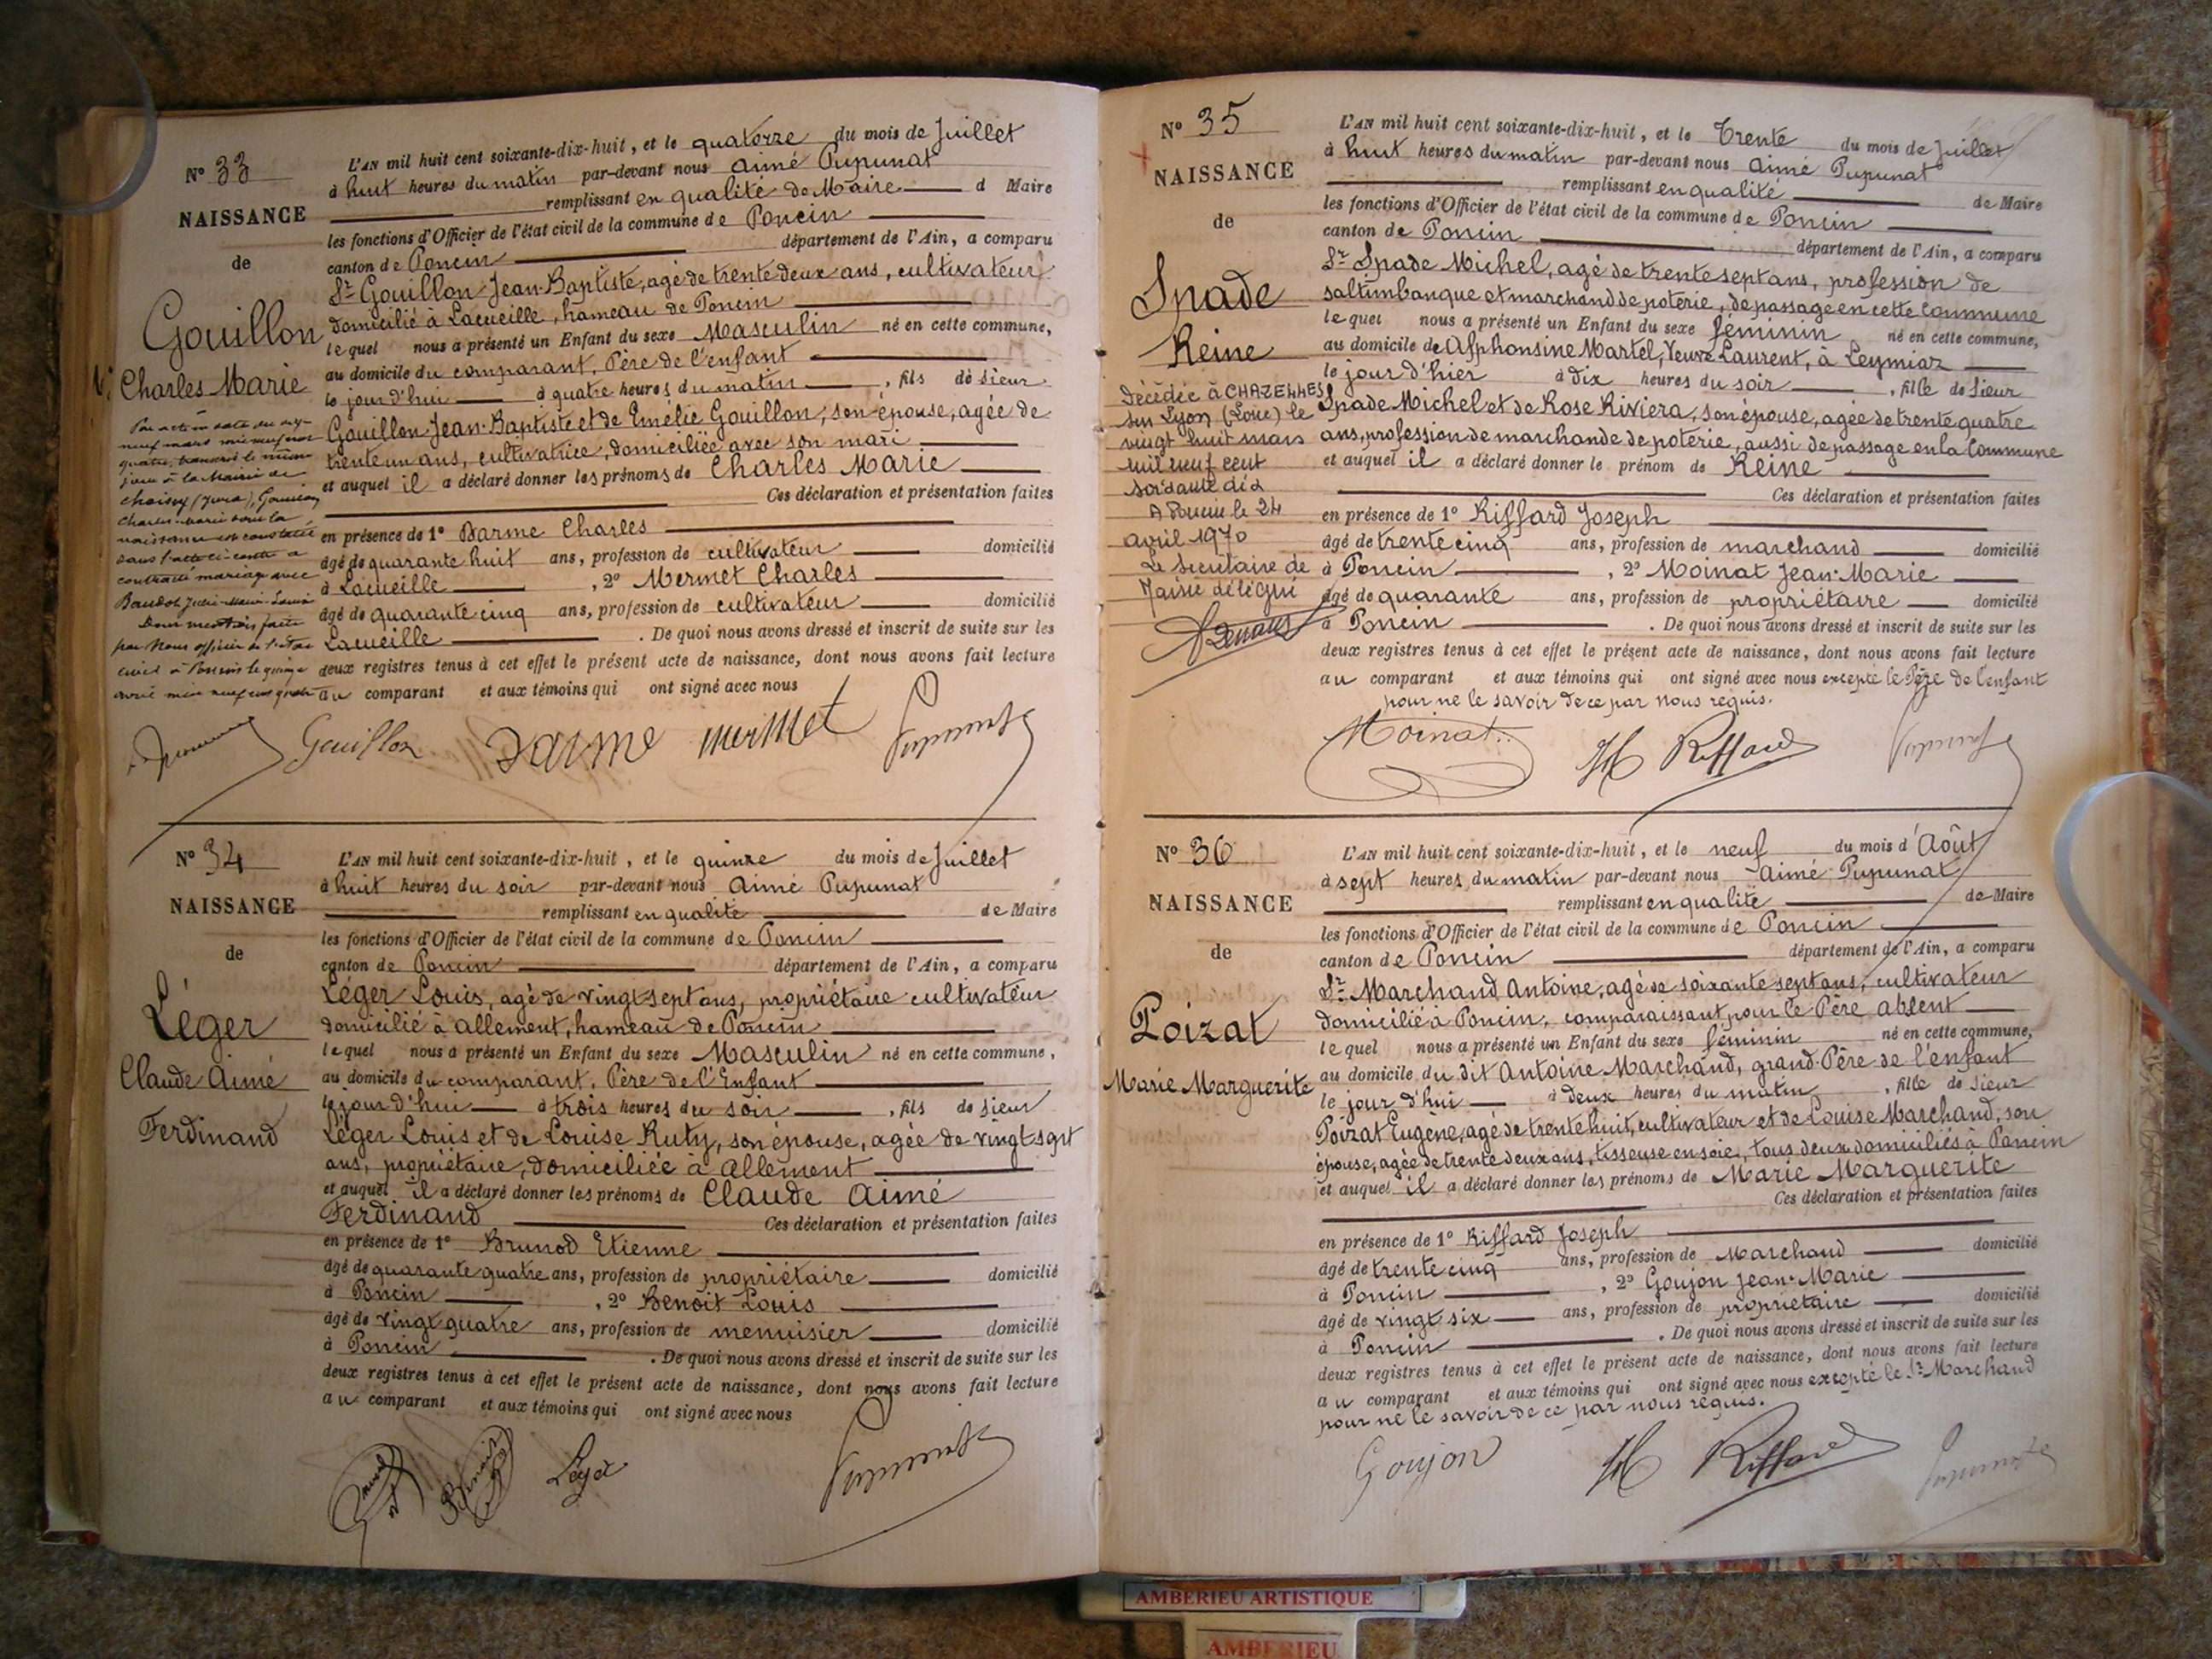 N° 33
NAISSANCE
de
Gouillon
Charles Marie
L'AN mil huit cent soixante-dix-huit, et le quatorze du mois de Juillet
à huit heures du matin par-devant nous Aimé Pupunat
remplissant en qualité de Maire d Maire
les fonctions d'Officier de l'état civil de la commune de Poncin
canton de Poncin département de l'Ain, a comparu
Sr Gouillon Jean-Baptiste, agé de trente deux ans, cultivateur
domicilié à Lacueille, hameau de Poncin
lequel nous a présenté un Enfant du sexe Masculin né en cette commune,
au domicile du comparant, Père de l'enfant
le jour d'hui à quatre heures du matin, fils de sieur
Gouillon Jean-Baptiste et de Emélie Gouillon, son épouse, agée de
trente un ans, cultivatrice, domiciliée avec son mari
et auquel il a déclaré donner les prénoms de Charles Marie
Ces déclaration et présentation faites
en présence de 1° Darme Charles
âgé de quarante huit ans, profession de cultivateur domicilié
à Lacueille, 2° Mermet Charles
âgé de quarante cinq ans, profession de cultivateur domicilié
Lacueille. De quoi nous avons dressé et inscrit de suite sur les
deux registres tenus à cet effet le présent acte de naissance, dont nous avons fait lecture
au comparant et aux témoins qui ont signé avec nous
Par acte en date du dix-
neuf mars mil neuf cent
quatre, transcrit le même
jour à la Mairie de
(Jura), Gouillon
Charles-Marie dont la
naissance est constatée
dans l'acte ci-contre a
contracté mariage avec
Baudot Julie-Marie-Louise
Dont mention faite
par Nous officier de l'état
civil à Poncin le quinze
avril mil neuf cent quatre
Gouillon Darme Mermet Pupunat
N° 34
NAISSANCE
de
Léger
Claude Aimé
Ferdinand
L'AN mil huit cent soixante-dix-huit, et le quinze du mois de Juillet
à huit heures du soir par-devant nous Aimé Pupunat
remplissant en qualité de Maire
les fonctions d'Officier de l'état civil de la commune de Poncin
canton de Poncin département de l'Ain, a comparu
Léger Louis, agé de vingt sept ans, propriétaire cultivateur
domicilié à Allement, hameau de Poncin
lequel nous a présenté un Enfant du sexe Masculin né en cette commune,
au domicile du comparant, Père de l'Enfant
le jour d'hui à trois heures du soir, fils de sieur
Léger Louis et de Louise Ruty, son épouse, agée de vingt sept
ans, propriétaire, domiciliée à Allement
et auquel il a déclaré donner les prénoms de Claude Aimé
Ferdinand Ces déclaration et présentation faites
en présence de 1° Brunod Etienne
âgé de quarante quatre ans, profession de propriétaire domicilié
à Poncin, 2° Benoit Louis
âgé de vingt quatre ans, profession de menuisier domicilié
à Poncin. De quoi nous avons dressé et inscrit de suite sur les
deux registres tenus à cet effet le présent acte de naissance, dont nous avons fait lecture
au comparant et aux témoins qui ont signé avec nous
Benoit Léger Pupunat
N° 35
NAISSANCE
de
Spade
Reine
Décédée à CHAZELLES
sur Lyon (Loire) le
vingt huit mars
mil neuf cent
soixante dix
A Poncin le 24
avril 1970
Le secrétaire de
Mairie délégué
L'AN mil huit cent soixante-dix-huit, et le Trente du mois de Juillet
à huit heures du matin par-devant nous Aimé Pupunat
remplissant en qualité de Maire
les fonctions d'Officier de l'état civil de la commune de Poncin
canton de Poncin département de l'Ain, a comparu
Sr Spade Michel, agé de trente sept ans, profession de
saltimbanque et marchand de poterie, de passage en cette commune
lequel nous a présenté un Enfant du sexe féminin né en cette commune,
au domicile de Alphonsine Martel, Veuve Laurent, à Leymiaz
le jour d'hier à dix heures du soir, fille de sieur
Spade Michel et de Rose Riviera, son épouse, agée de trente quatre
ans, profession de marchande de poterie, aussi de passage en la Commune
et auquel il a déclaré donner le prénom de Reine
Ces déclaration et présentation faites
en présence de 1° Riffard Joseph
âgé de trente cinq ans, profession de marchand domicilié
à Poncin, 2° Moinat Jean-Marie
âgé de quarante ans, profession de propriétaire domicilié
à Poncin. De quoi nous avons dressé et inscrit de suite sur les
deux registres tenus à cet effet le présent acte de naissance, dont nous avons fait lecture
au comparant et aux témoins qui ont signé avec nous excepté le Père de l'enfant
pour ne le savoir de ce par nous requis.
Moinat Riffard Pupunat
N° 36
NAISSANCE
de
Poizat
Marie Marguerite
L'AN mil huit cent soixante-dix-huit, et le neuf du mois d'Août
à sept heures du matin par-devant nous Aimé Pupunat
remplissant en qualité de Maire
les fonctions d'Officier de l'état civil de la commune de Poncin
canton de Poncin département de l'Ain, a comparu
Sr Marchand Antoine, agé de soixante sept ans, cultivateur
domicilié à Poncin, comparaissant pour le Père absent
lequel nous a présenté un Enfant du sexe féminin né en cette commune,
au domicile du dit Antoine Marchand, grand-Père de l'enfant
le jour d'hui à deux heures du matin, fille de sieur
Poizat Eugène, agé de trente huit, cultivateur et de Louise Marchand, son
épouse, agée de trente deux ans, tisseuse en soie, tous deux domiciliés à Poncin
et auquel il a déclaré donner les prénoms de Marie Marguerite
Ces déclaration et présentation faites
en présence de 1° Riffard Joseph
âgé de trente cinq ans, profession de Marchand domicilié
à Poncin, 2° Goujon Jean-Marie
âgé de vingt six ans, profession de propriétaire domicilié
à Poncin. De quoi nous avons dressé et inscrit de suite sur les
deux registres tenus à cet effet le présent acte de naissance, dont nous avons fait lecture
au comparant et aux témoins qui ont signé avec nous excepté le Sr Marchand
pour ne le savoir de ce par nous requis.
Goujon Riffard Pupunat
AMBERIEU ARTISTIQUE
AMBERIEU